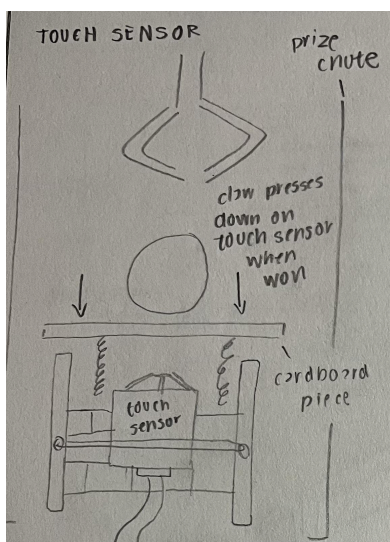 TOUCH SENSOR
prize
chute
claw presses
down on
touch sensor
when
won
cardboard
piece
touch
sensor